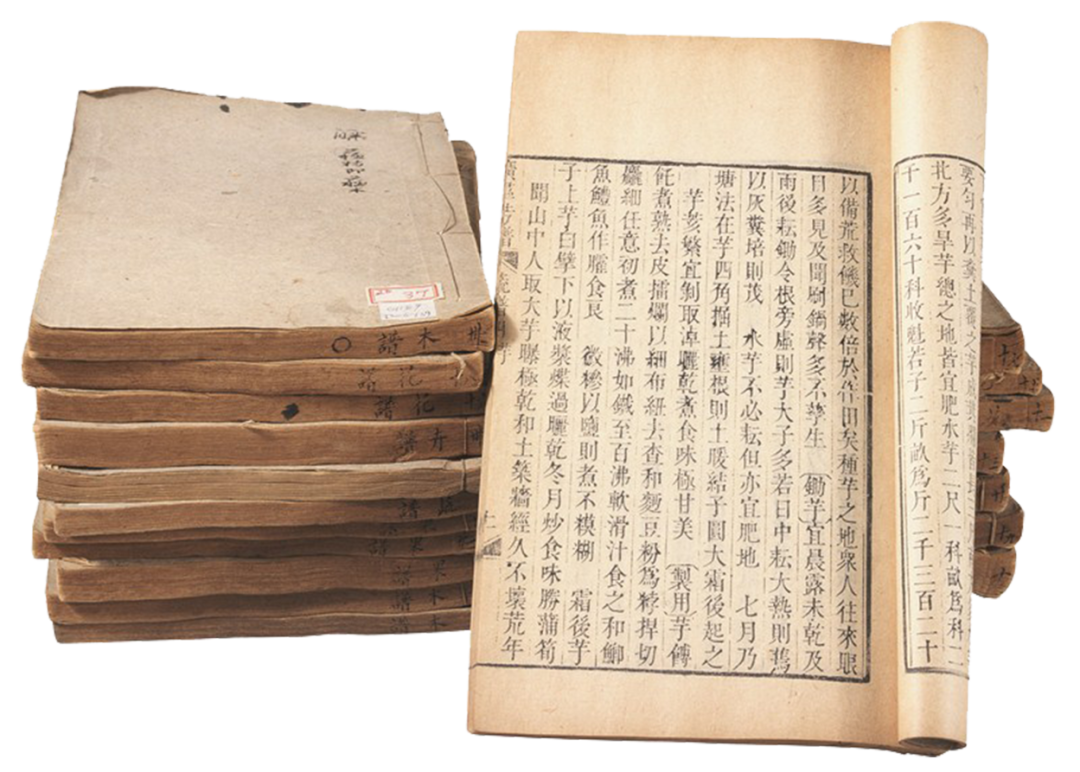 要勻再以糞土覆之芋
北方多旱芋總之地皆宜肥水芋二尺一科畝爲科二
千一百六十科收魁若子二斤畝爲斤二千三百二十
以備荒救饑已數倍於作田矣種芋之地衆人往來眼
目多見及聞刷鍋聲多不孳生 鋤芋宜晨露未乾及
雨後耘鋤令根旁虛則芋大子多若日中耘大熱則蔫
以灰糞培則茂 水芋不必耘但亦宜肥地 七月乃
塘法在芋四角掘土壅根則土暖結子圓大霜後起之
芋荄繁宜剝取淖曬乾煮食味極甘美 製用芋餺
飥煮熟去皮擂爛以細布紐去查和麵豆粉爲粰捍切
麤細任意初煮二十沸如鐵至百沸軟滑汁食之和鯽
魚鱧魚作臛食良 微糝以鹽則煮不糢糊 霜後芋
子上芋白擘下以液漿煠過曬乾冬月炒食味勝蒲筍
聞山中人取大芋曝極乾和土築牆經久不壞荒年
廣羣芳譜
木譜
花譜
花譜
卉譜